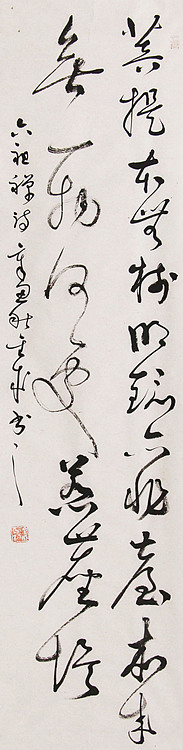 菩提本無樹明鏡亦非臺本來
無一物何處惹塵埃
六祖禪詩辛秋書之